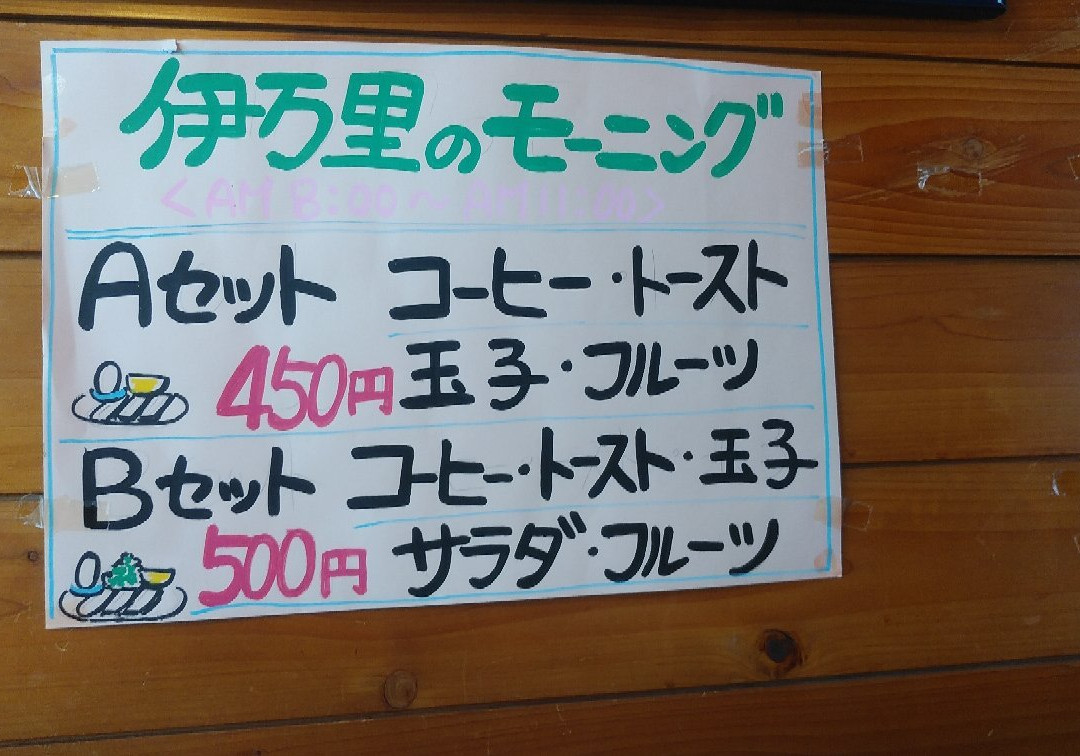 伊万里のモーニング
<AM 8:00～AM11:00>
Aセット コーヒー・トースト
450円 玉子・フルーツ
Bセット コーヒー・トースト・玉子
500円 サラダ・フルーツ